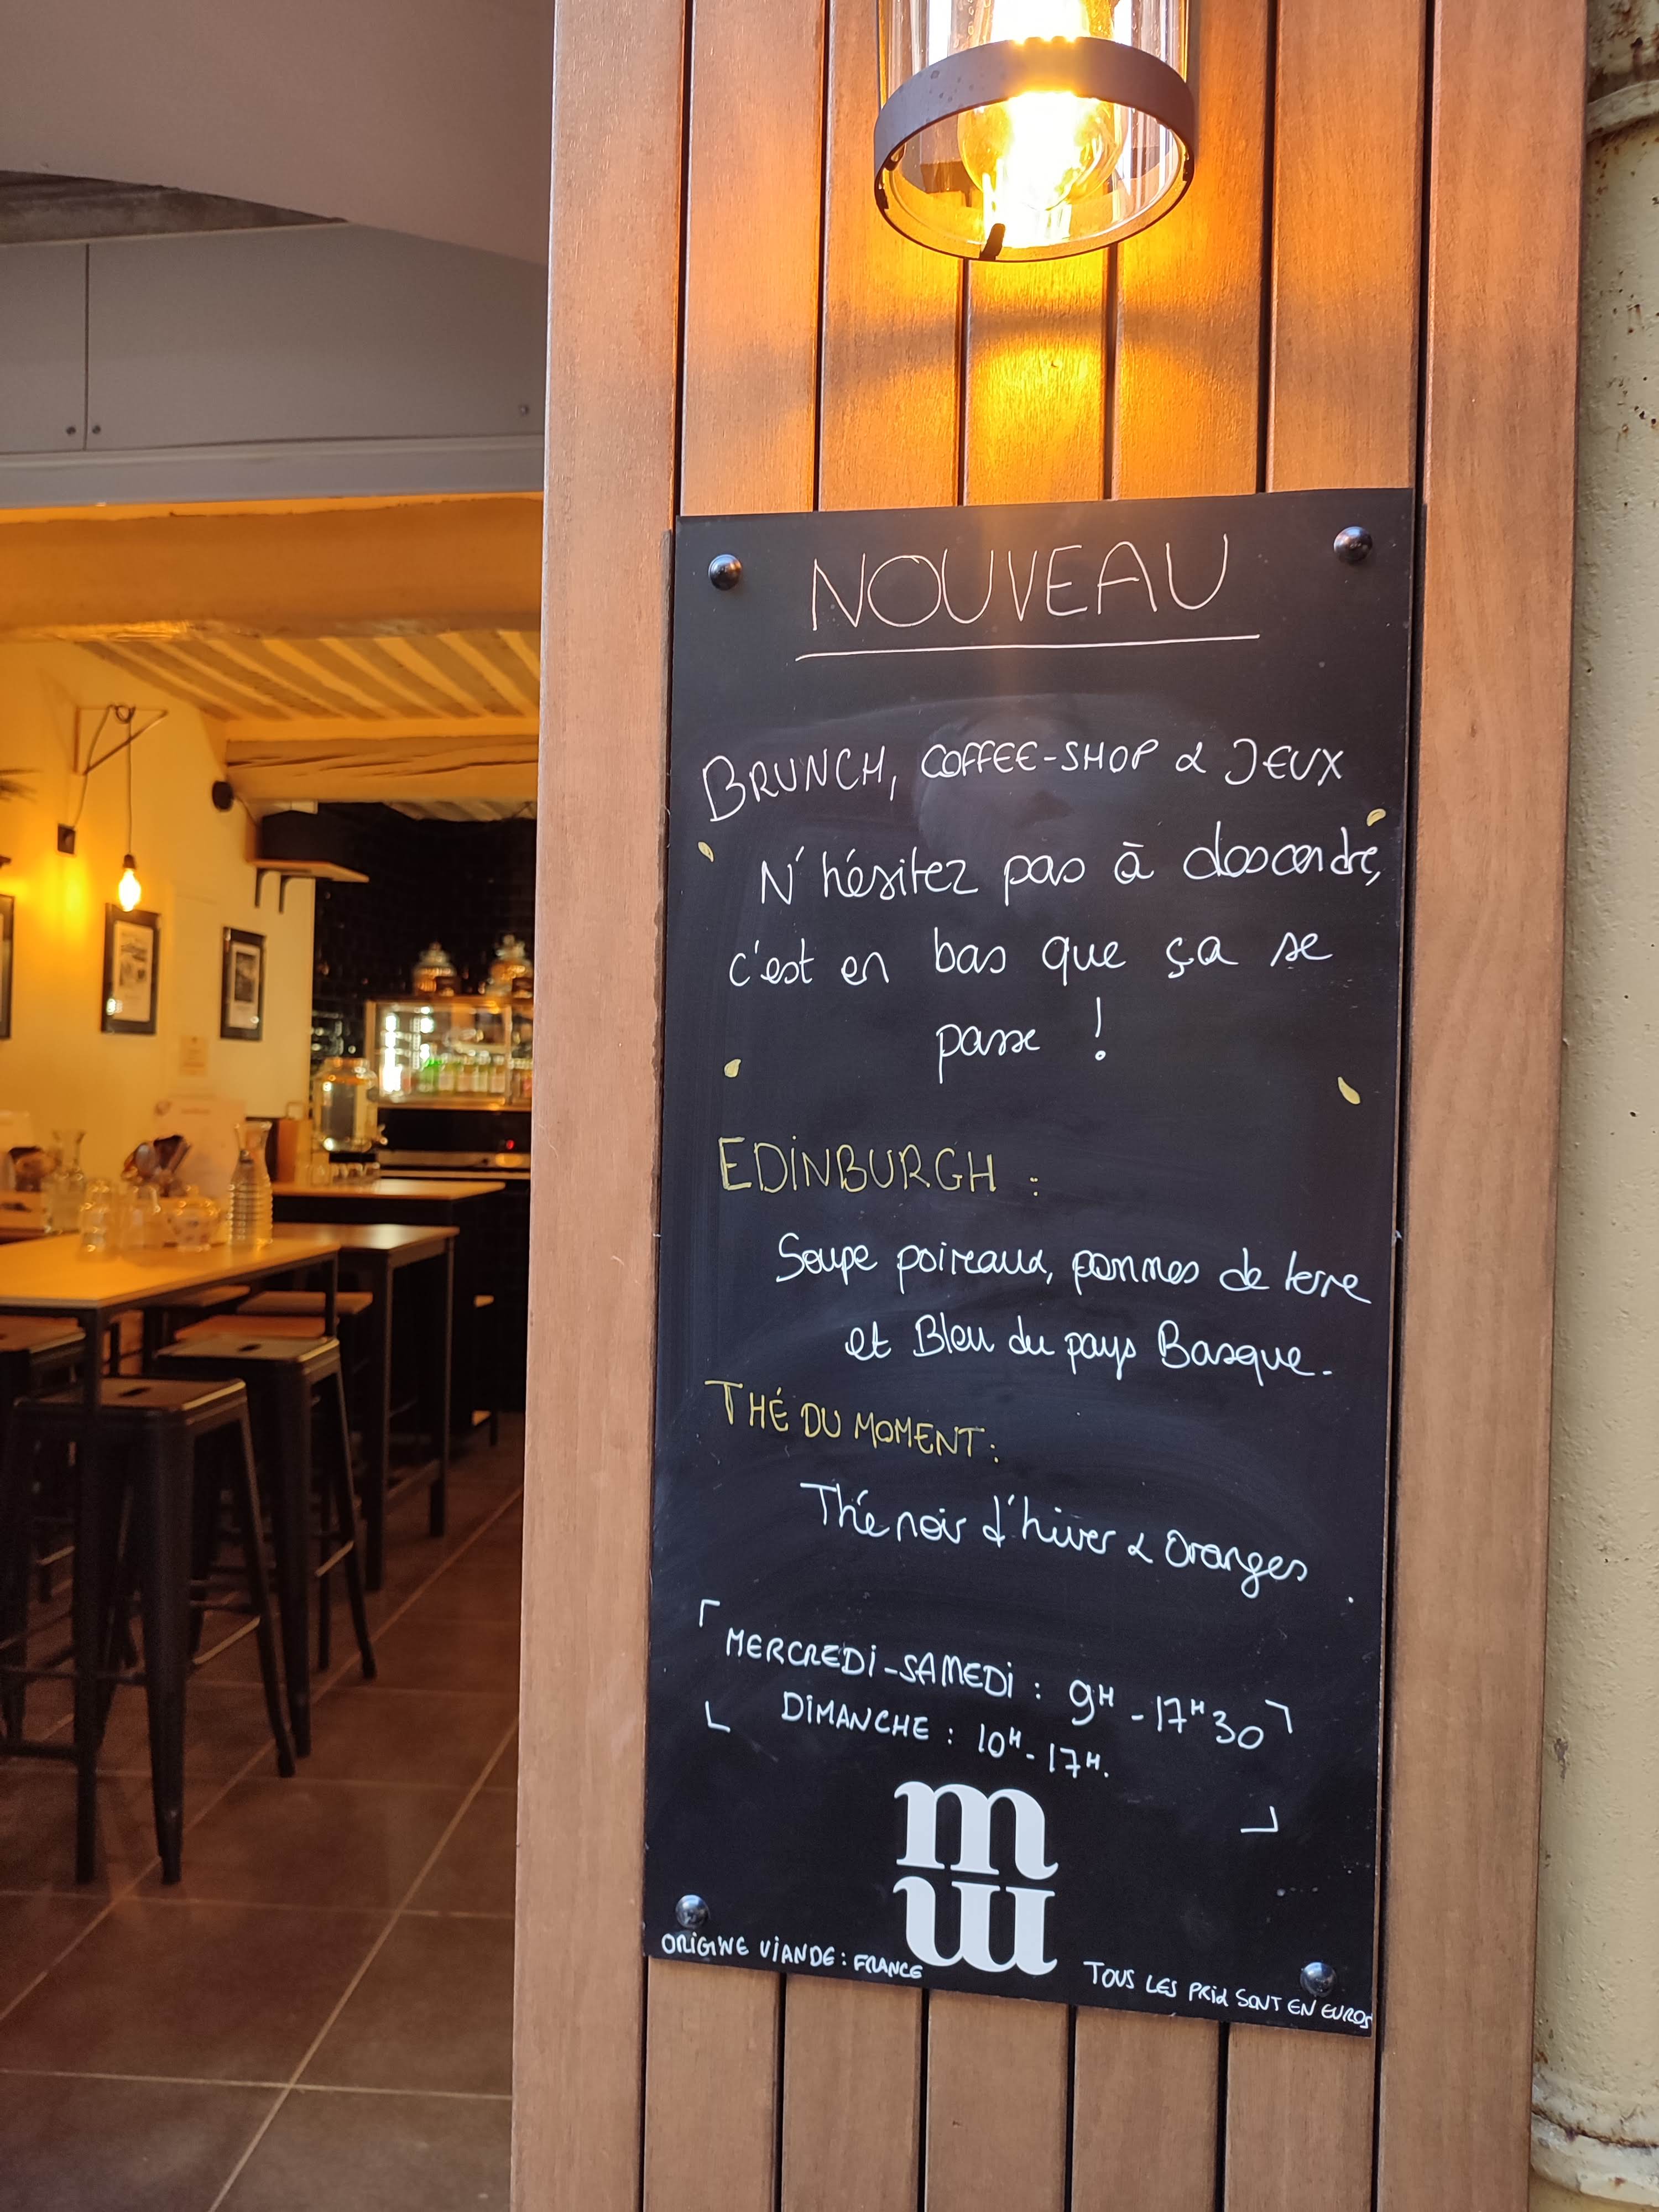 NOUVEAU
BRUNCH, COFFEE-SHOP & JEUX
N'hésitez pas à descendre,
c'est en bas que ça se
passe !
EDINBURGH :
Soupe poireaux, pommes de terre
et Bleu du pays Basque.
THÉ DU MOMENT :
Thé noir d'hiver & Oranges
MERCREDI-SAMEDI : 9H - 17H30
DIMANCHE : 10H - 17H.
m
ORIGINE VIANDE : FRANCE
TOUS LES PRIX SONT EN EUROS